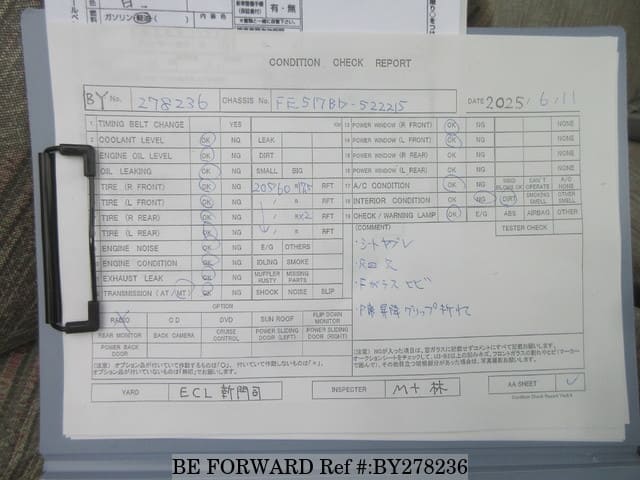 ガソリン 軽油
内装色
有・無
CONDITION CHECK REPORT
BY No. 278236 CHASSIS No. FE517BD-522215 DATE 2025/6/11
1 TIMING BELT CHANGE YES KM 13 POWER WINDOW (R FRONT) OK NG NONE
2 COOLANT LEVEL OK NG LEAK 14 POWER WINDOW (L FRONT) OK NG NONE
ENGINE OIL LEVEL OK NG DIRT POWER WINDOW (R REAR) OK NG NONE
OIL LEAKING OK NG SMALL BIG POWER WINDOW (L REAR) OK NG NONE
TIRE (R FRONT) OK NG 205/60 R17.5 RFT 17 A/C CONDITION OK NG WIND BLOWS OK CAN'T OPERATE A/C NONE
TIRE (L FRONT) OK NG / R RFT 18 INTERIOR CONDITION OK NG DIRT SMOKING SMELL OTHER SMELL
TIRE (R REAR) OK NG / R x2 RFT 19 CHECK / WARNING LAMP OK E/G ABS AIRBAG OTHER
TIRE (L REAR) OK NG / R RFT (COMMENT) TESTER CHECK
ENGINE NOISE OK NG E/G OTHERS
・シートヤブレ
ENGINE CONDITION OK NG IDLING SMOKE
EXHAUST LEAK OK NG MUFFLER RUSTY MISSING PARTS
・Fガラス ヒビ
TRANSMISSION (AT / MT) OK NG SHOCK NOISE SLIP
OPTION
RADIO CD DVD SUN ROOF FLIP DOWN MONITOR
REAR MONITOR BACK CAMERA CRUISE CONTROL POWER SLIDING DOOR (LEFT) POWER SLIDING DOOR (RIGHT)
POWER BACK DOOR
YARD ECL 新門司 INSPECTER M+林 AA SHEET ✓
Condition Check Report Ver4.5
BE FORWARD Ref #:BY278236